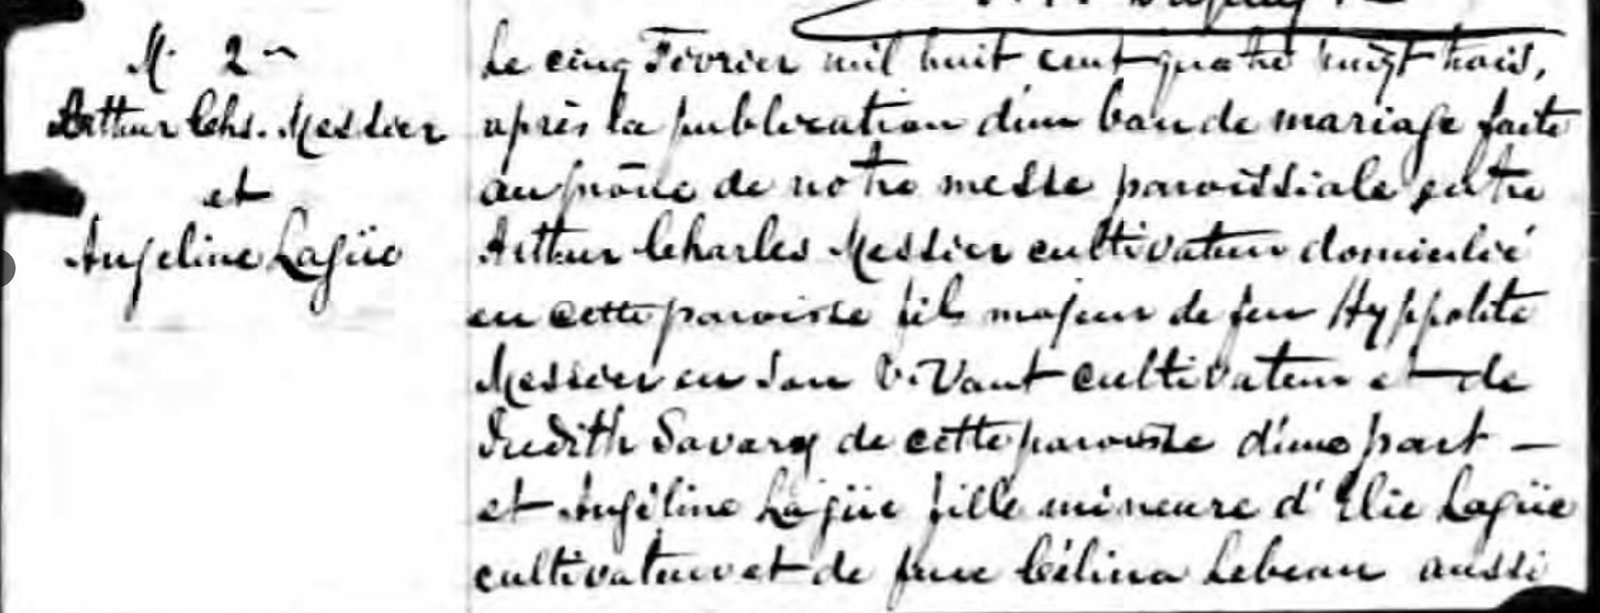 M. 2m
Arthur Chs. Messier
et
Angeline Lagüe
Le cinq Février mil huit cent quatre vingt trois,
après la publication d'un ban de mariage faite
au prône de notre messe paroissiale entre
Arthur Charles Messier cultivateur domicilié
en cette paroisse fils majeur de feu Hyppolite
Messier en son vivant cultivateur et de
Judith Savary de cette paroisse d'une part —
et Angéline Lagüe fille mineure d'Elie Lagüe
cultivateur et de feue Célina Lebeau aussi